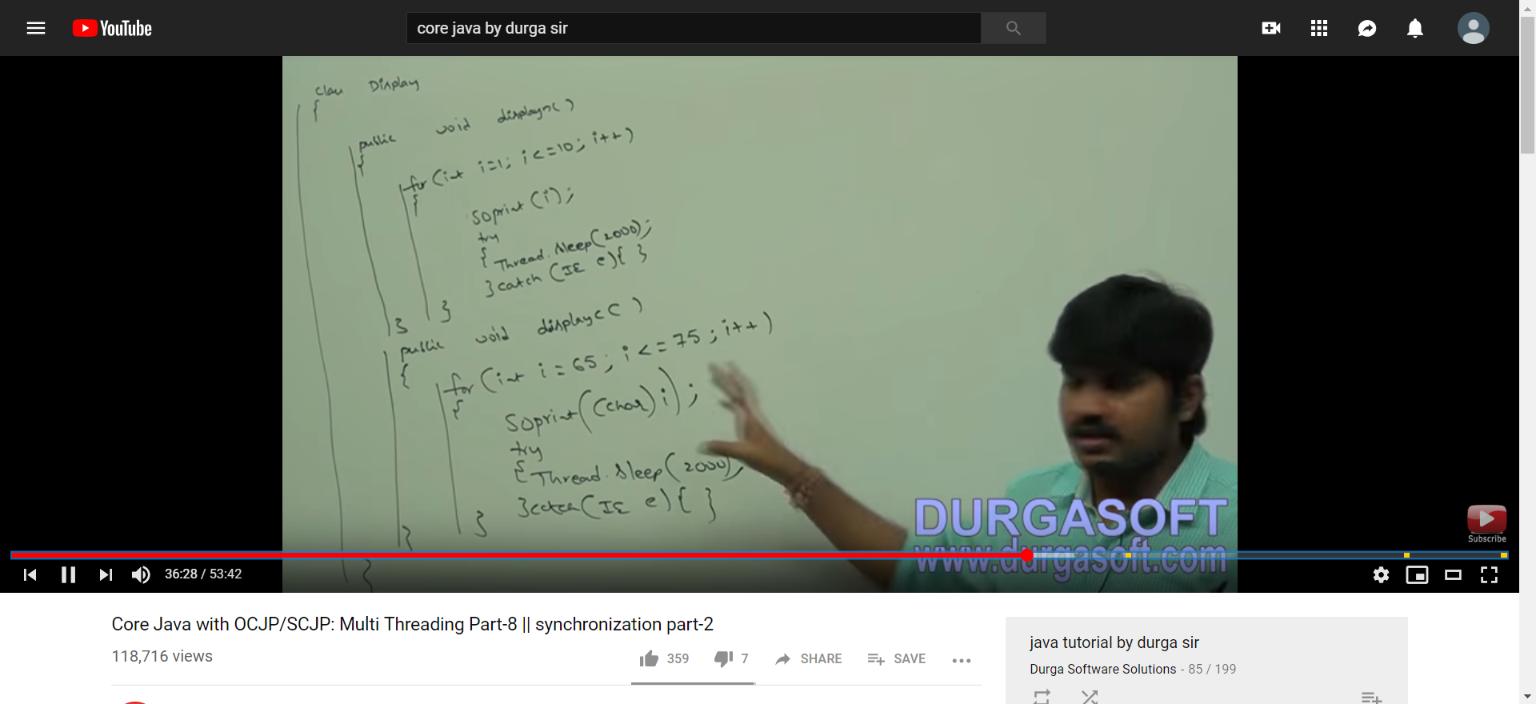 YouTube
core java by durga sir
class Display
{
public void displayn()
{
for(int i=1; i<=10; i++)
{
Soprint(i);
try
{ Thread.sleep(2000);
}catch (IE e){ }
}
}
public void displayc( )
{
for(int i=65; i<=75; i++)
{
Soprint((char)i);
try
{ Thread.sleep(2000),
}catch(IE e){ }
}
}
}
DURGASOFT
www.durgasoft.com
Subscribe
36:28 / 53:42
Core Java with OCJP/SCJP: Multi Threading Part-8 || synchronization part-2
118,716 views
359 7 SHARE SAVE
java tutorial by durga sir
Durga Software Solutions - 85 / 199